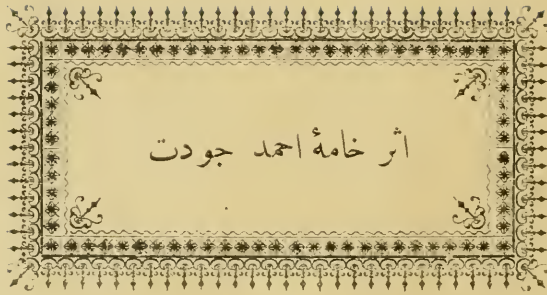 اثر خامهٔ احمد جودت